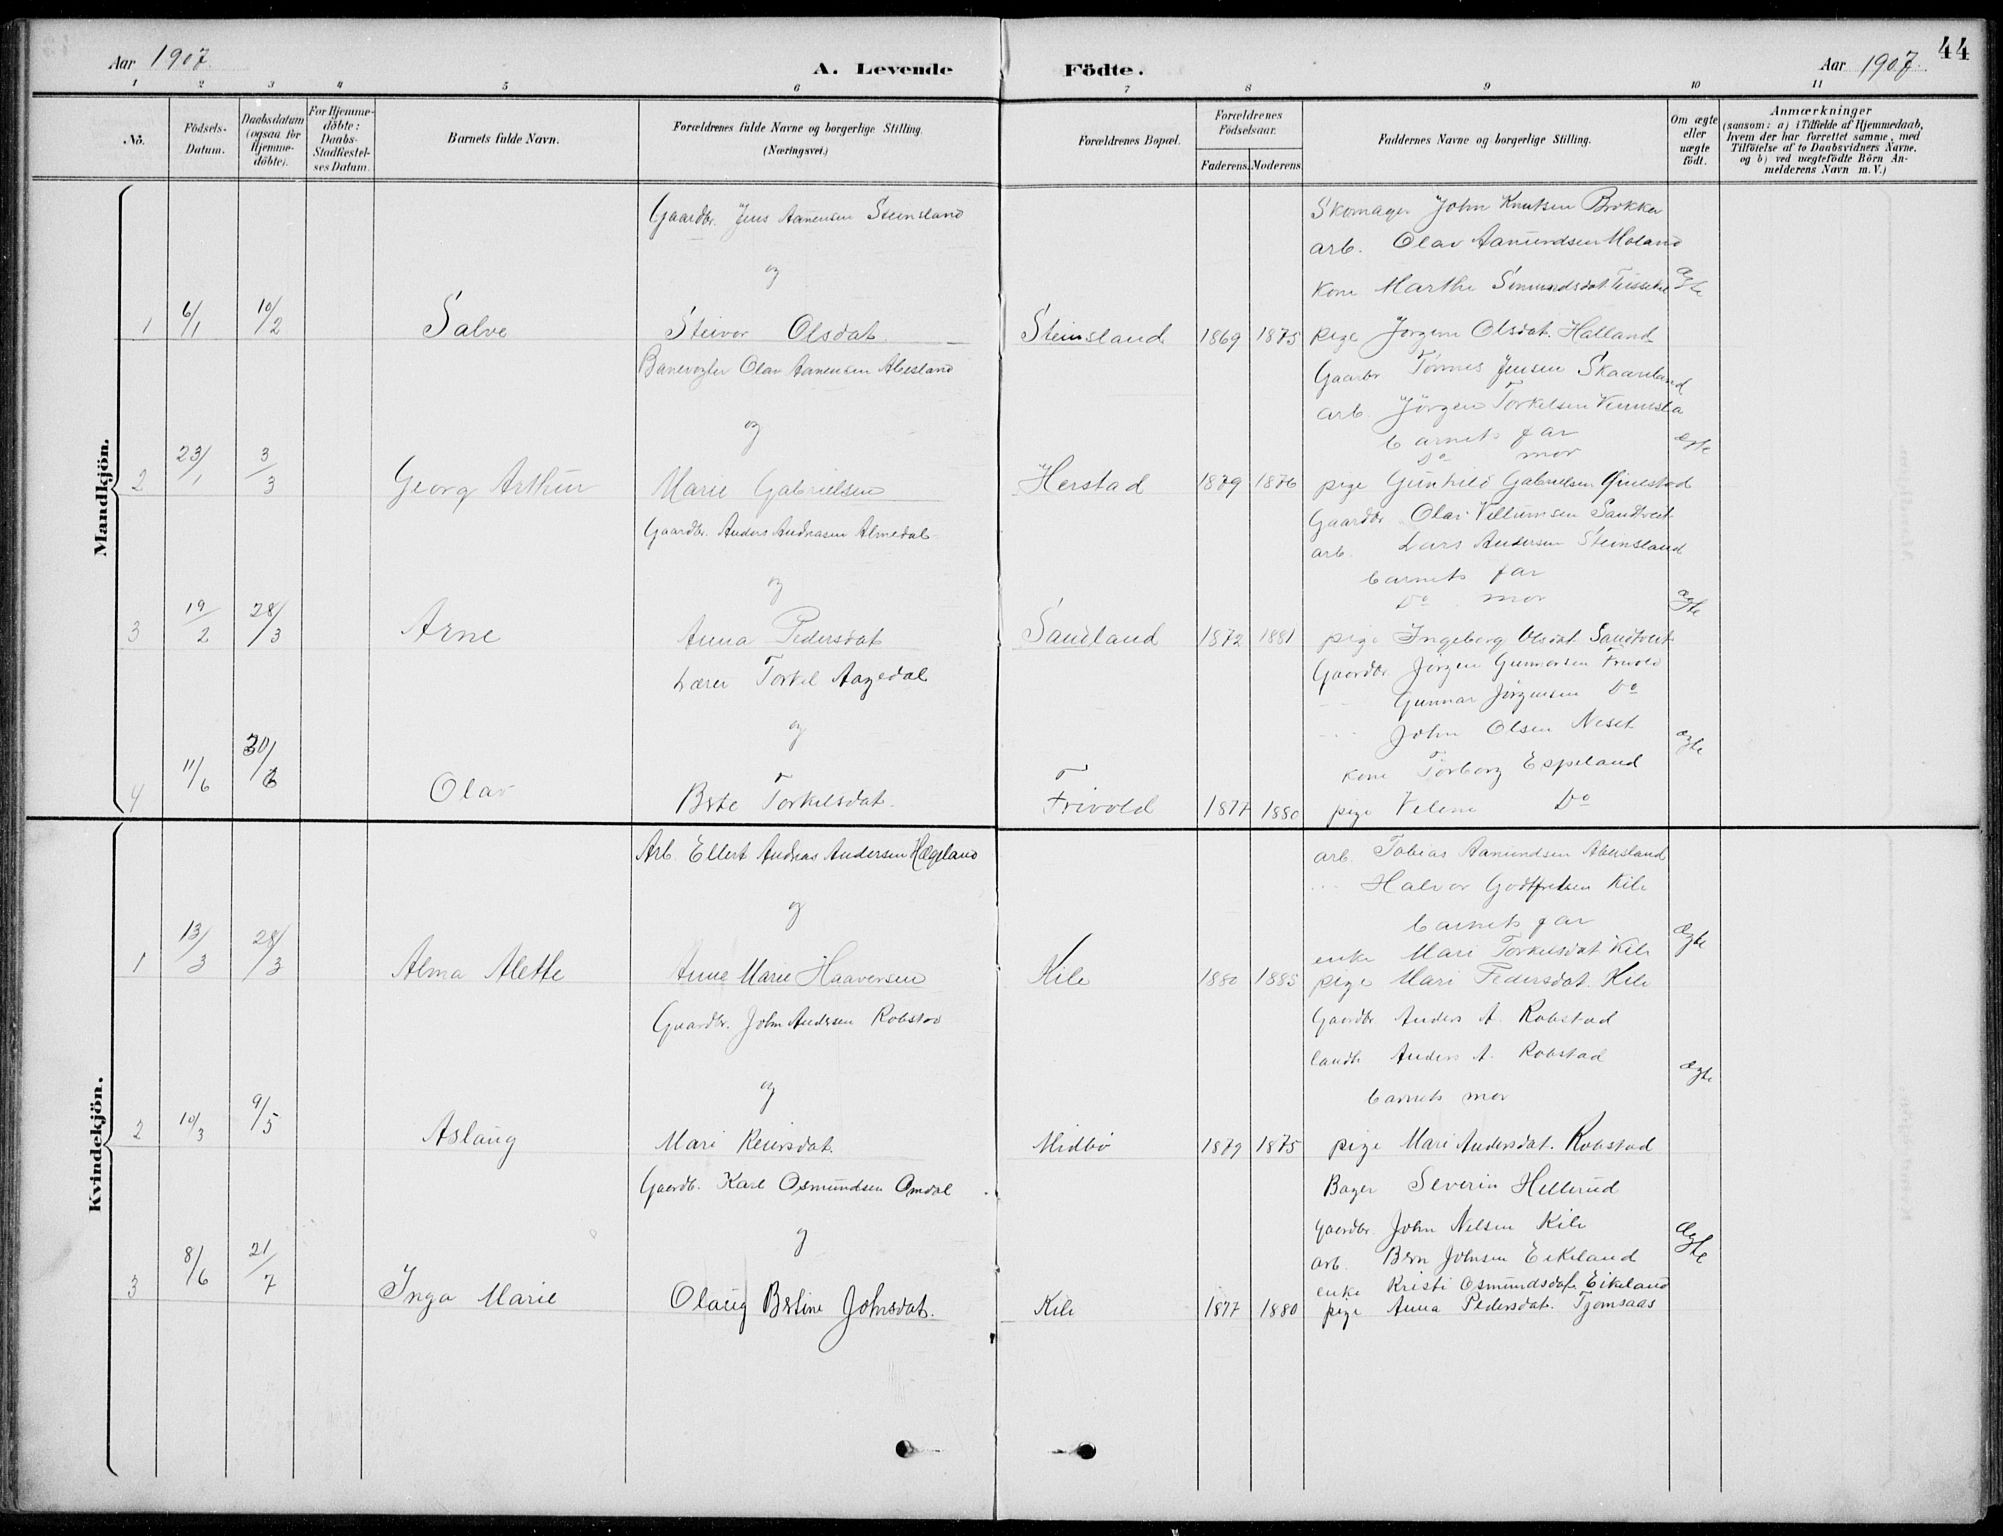 44
Aar 1907. A. Levende Födte. Aar 1907.
1 2 3 4 5 6 7 8 9 10 11
No.
Födsels-Datum.
Daabsdatum (ogsaa for Hjemme-döbte).
For Hjemme-döbte: Daabs-Stadfæstel-ses Datum.
Barnets fulde Navn.
Forældrenes fulde Navne og borgerlige Stilling. (Næringsvei.)
Forældrenes Bopæl.
Forældrenes Födselsaar.
Faderens. Moderens.
Faddernes Navne og borgerlige Stilling.
Om ægte eller uægte födt.
Anmærkninger
(saasom: a) i Tilfælde af Hjemmedaab,
hvem der har forrettet samme, med
Tilföielse af to Daabsvidners Navne.
og b) ved uægtefödte Börn An-
melderens Navn m. V.)
Mandkjön.
Gaardbr. Jens Aanensen Steinsland
og
1 6/1 10/2 Salve Steivor Olsdat. Steinsland 1869 1875
Skomager John Knutsen Brokker
arb. Olav Aanundsen Moland
kone Marthe
pige Jorgine Olsdat. Halland
ægte
Banevogter Olav Aanensen Abesland
og
2 23/1 3/3 Georg Arthur Marie Gabrielsen Herstad 1879 1876
Gaarbr Tönnes Jensen Skaareland
arb. Jörgen Torkelsen
barnets far
Do mor
pige Gunhild Gabrielsen
ægte
Gaardbr. Anders Andreasen Almedal
og
3 19/2 28/3 Arne Anna Pedersdat Sandland 1872 1881
Gaardbr Olav Villumsen Sandtveit
arb. Lars Andersen Steinsland
barnets far
Do mor
pige Ingeborg Olsdat Sandtveit
ægte
Lærer Torkel Aagedal
og
4 11/6 30/6 Olav Berte Torkelsdat. Frivold 1877 1880
Gaardbr. Jörgen Gunnarsen Frivold
" Gunnar Jörgensen Do
" John Olsen Neset
kone Torborg Espeland
pige Velene Do
ægte
Kvindekjön.
Arb. Ellert Andreas Andersen Hægeland
og
1 13/3 28/3 Alma Alette Anne Marie Haaversen Kile 1880 1885
arb. Tobias Aanundsen Abesland
" Halvor Godtfretsen Kile
barnets far
enke Mari Torkelsdat. Kile
pige Mari Pedersdat. Kile
ægte
Gaardbr. John Andersen Robstad
og
2 10/3 9/5 Aslaug Mari Reiersdat. Midbö 1879 1875
Gaardbr Anders A. Robstad
landh. Anders A. Robstad
barnets mor
pige Mari Andersdat. Robstad
ægte
Gaardb. Karl Osmundsen Omdal
og
3 8/6 21/7 Inga Marie Olaug Bertine Johnsdat. Kile 1877 1880
Bager Severin Hellerud
Gaardbr. John Nilsen Kile
arb. Bern Johnsen Eikeland
enke Kristi Osmundsdat. Eikeland
pige Anna Pedersdat. Tjomsaas
ægte